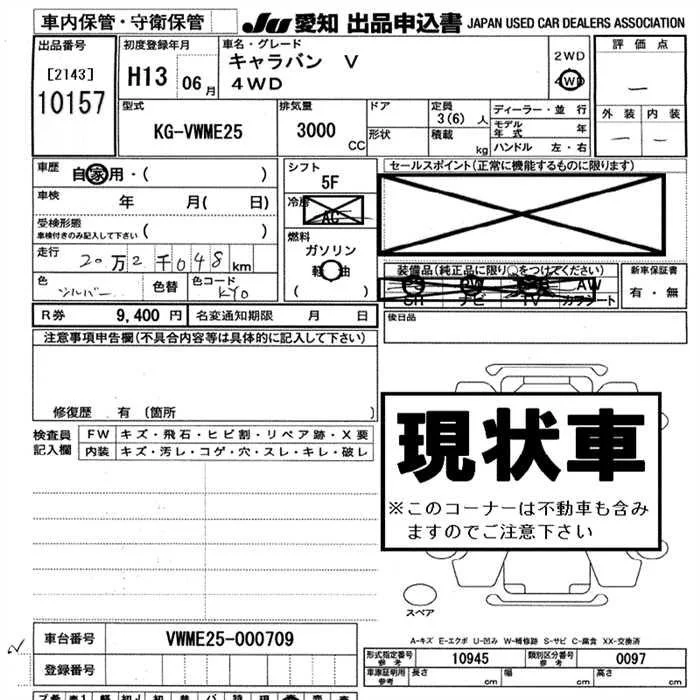 車内保管・守衛保管 JU 愛知 出品申込書 JAPAN USED CAR DEALERS ASSOCIATION
出品番号
[2143]
10157
初度登録年月
H13 06月
車名・グレード
キャラバン V
4WD
2WD
4WD
評価点
外装 内装
型式
KG-VWME25
排気量
3000
CC
ドア
形状
定員
3(6) 人
積載
kg
ディーラー・並行
モデル年式 年
ハンドル 左・右
車歴
自家用・( )
車検
年 月( 日)
受検形態
車検付きのみ記入して下さい ( )
走行
20万2千048km
色
シルバー
色替
色コード
KY0
シフト
5F
冷房
AC
燃料
ガソリン
軽油
( )
セールスポイント(正常に機能するものに限ります)
装備品(純正品に限り○をつけてください)
PS PW SR AW
ナビ TV カワシート
新車保証書
有・無
後日品
R券 9,400 円 名変通知期限 月 日
注意事項申告欄(不具合内容等は具体的に記入して下さい)
修復歴 有 〔箇所 〕
検査員記入欄
FW キズ・飛石・ヒビ割・リペア跡・X要
内装 キズ・汚レ・コゲ・穴・スレ・キレ・破レ
現状車
※このコーナーは不動車も含み
ますのでご注意下さい
スペア
A-キズ E-エクボ U-凹み W-補修跡 S-サビ C-腐食 XX-交換済
車台番号 VWME25-000709
登録番号
形式指定番号 参考 10945 類別区分番号 参考 0097
車庫証明用 参考 長さ cm 幅 cm 高さ cm